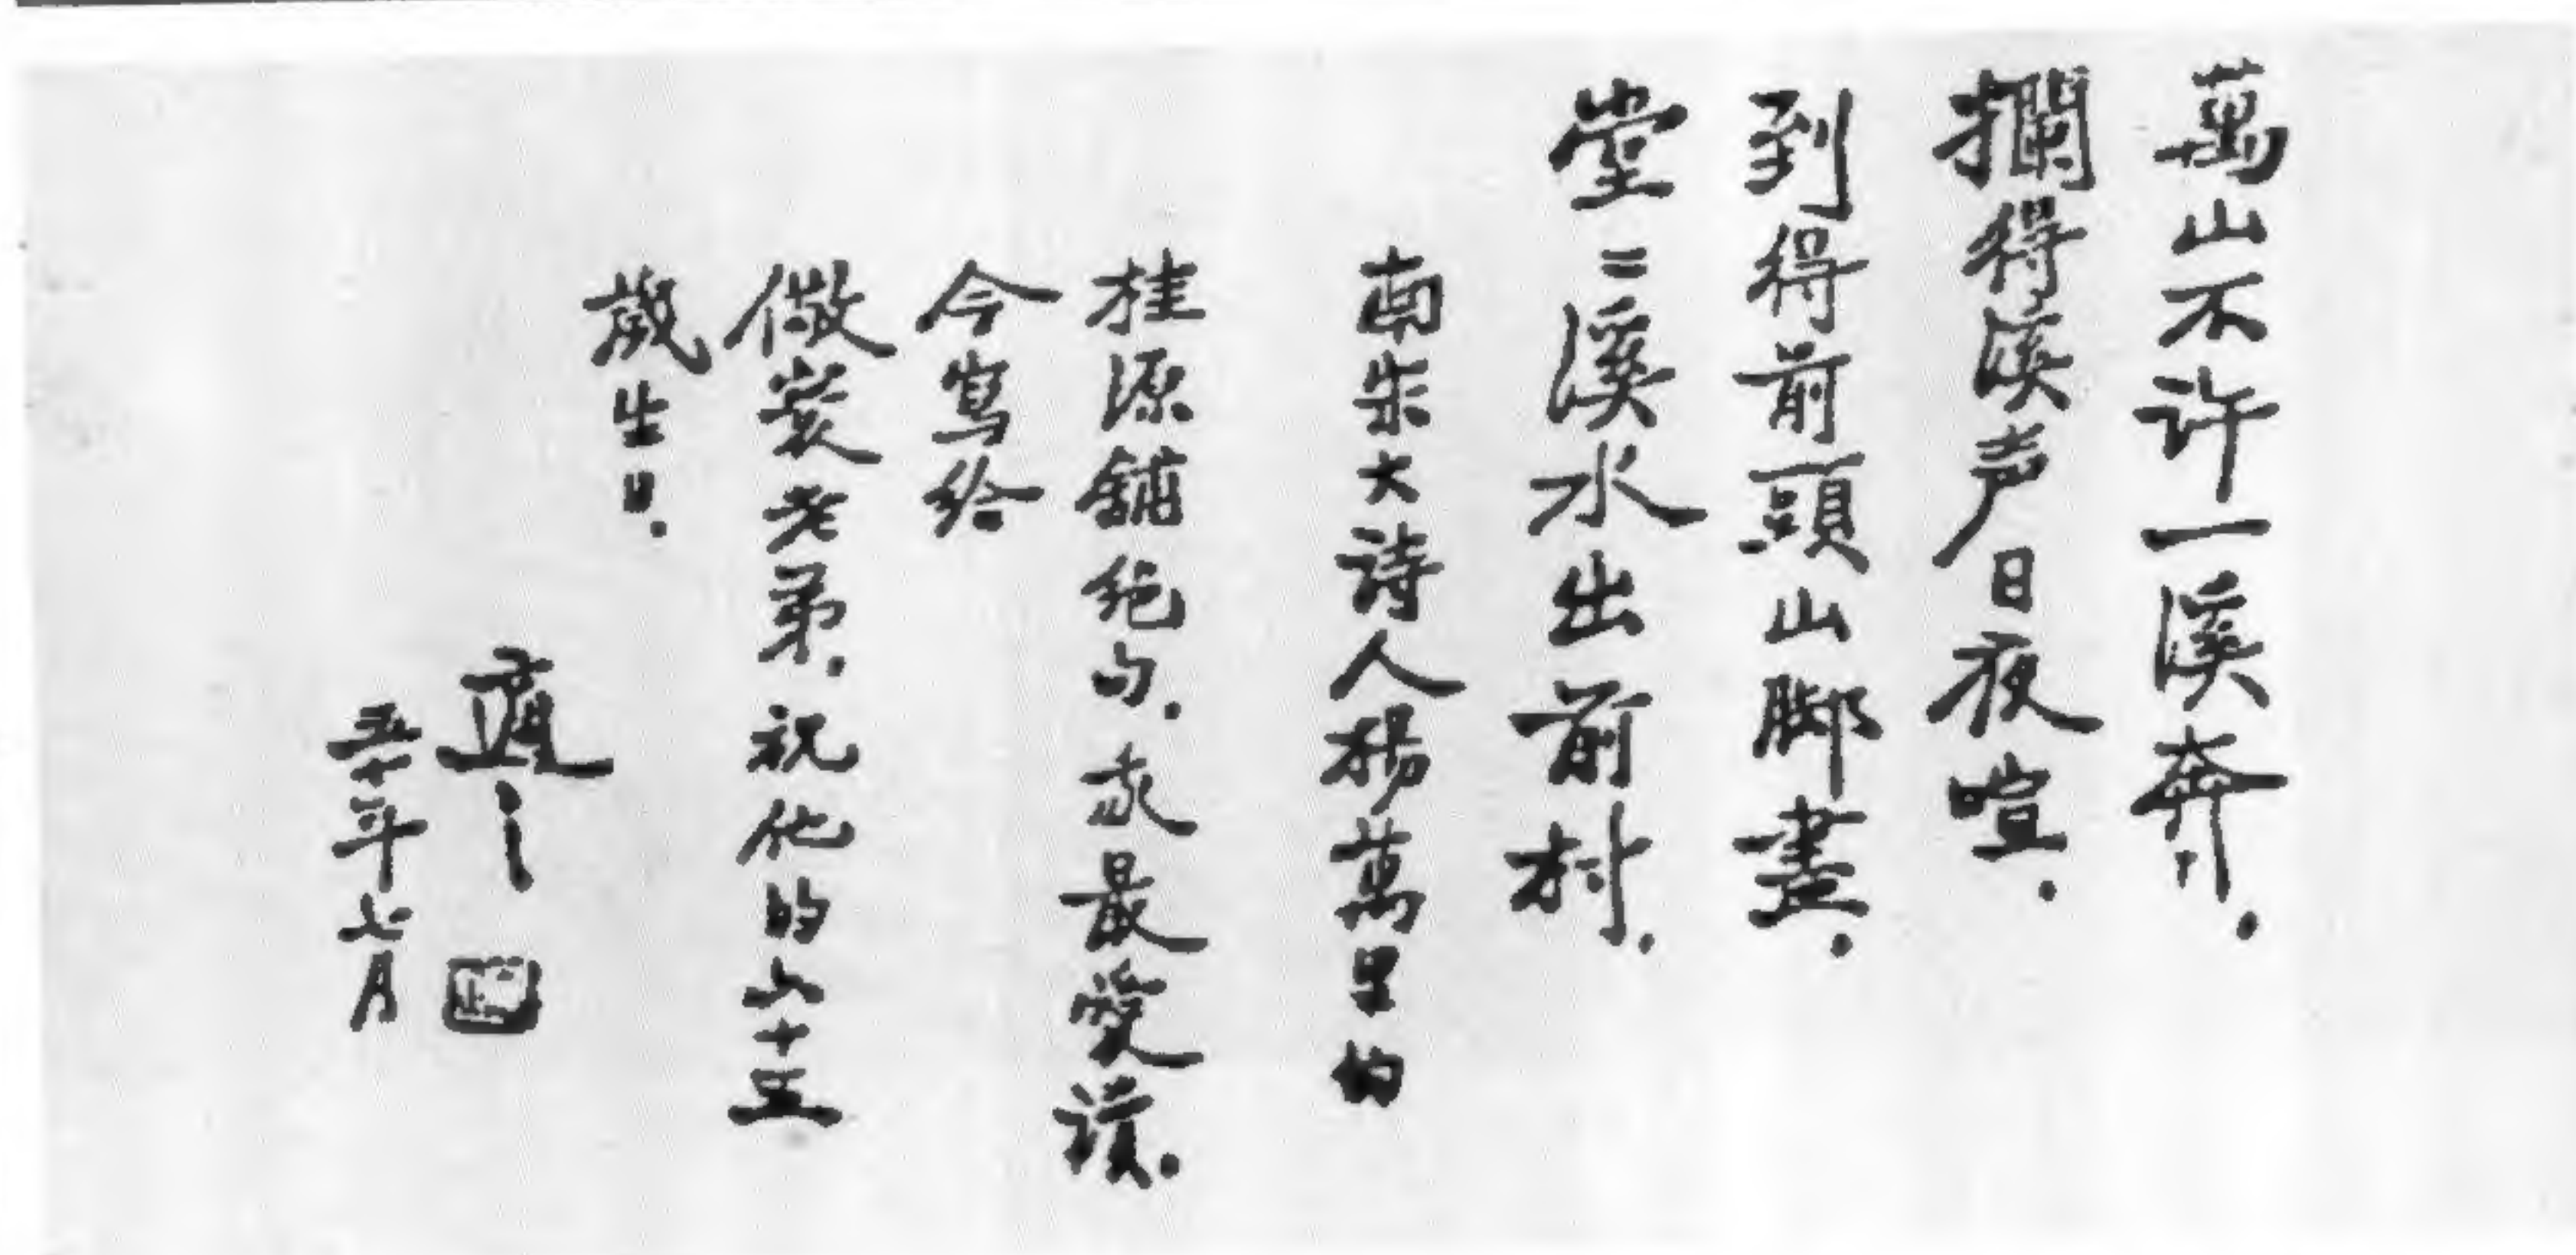 萬山不许一溪奔.
攔得溪声日夜喧.
到得前頭山脚盡.
堂=溪水出前村.
南宋大詩人楊萬里的
桂源鋪絕句.我最愛讀.
今寫給
儆寰老弟.祝他的六十五
歲生日.
適之
五十年七月